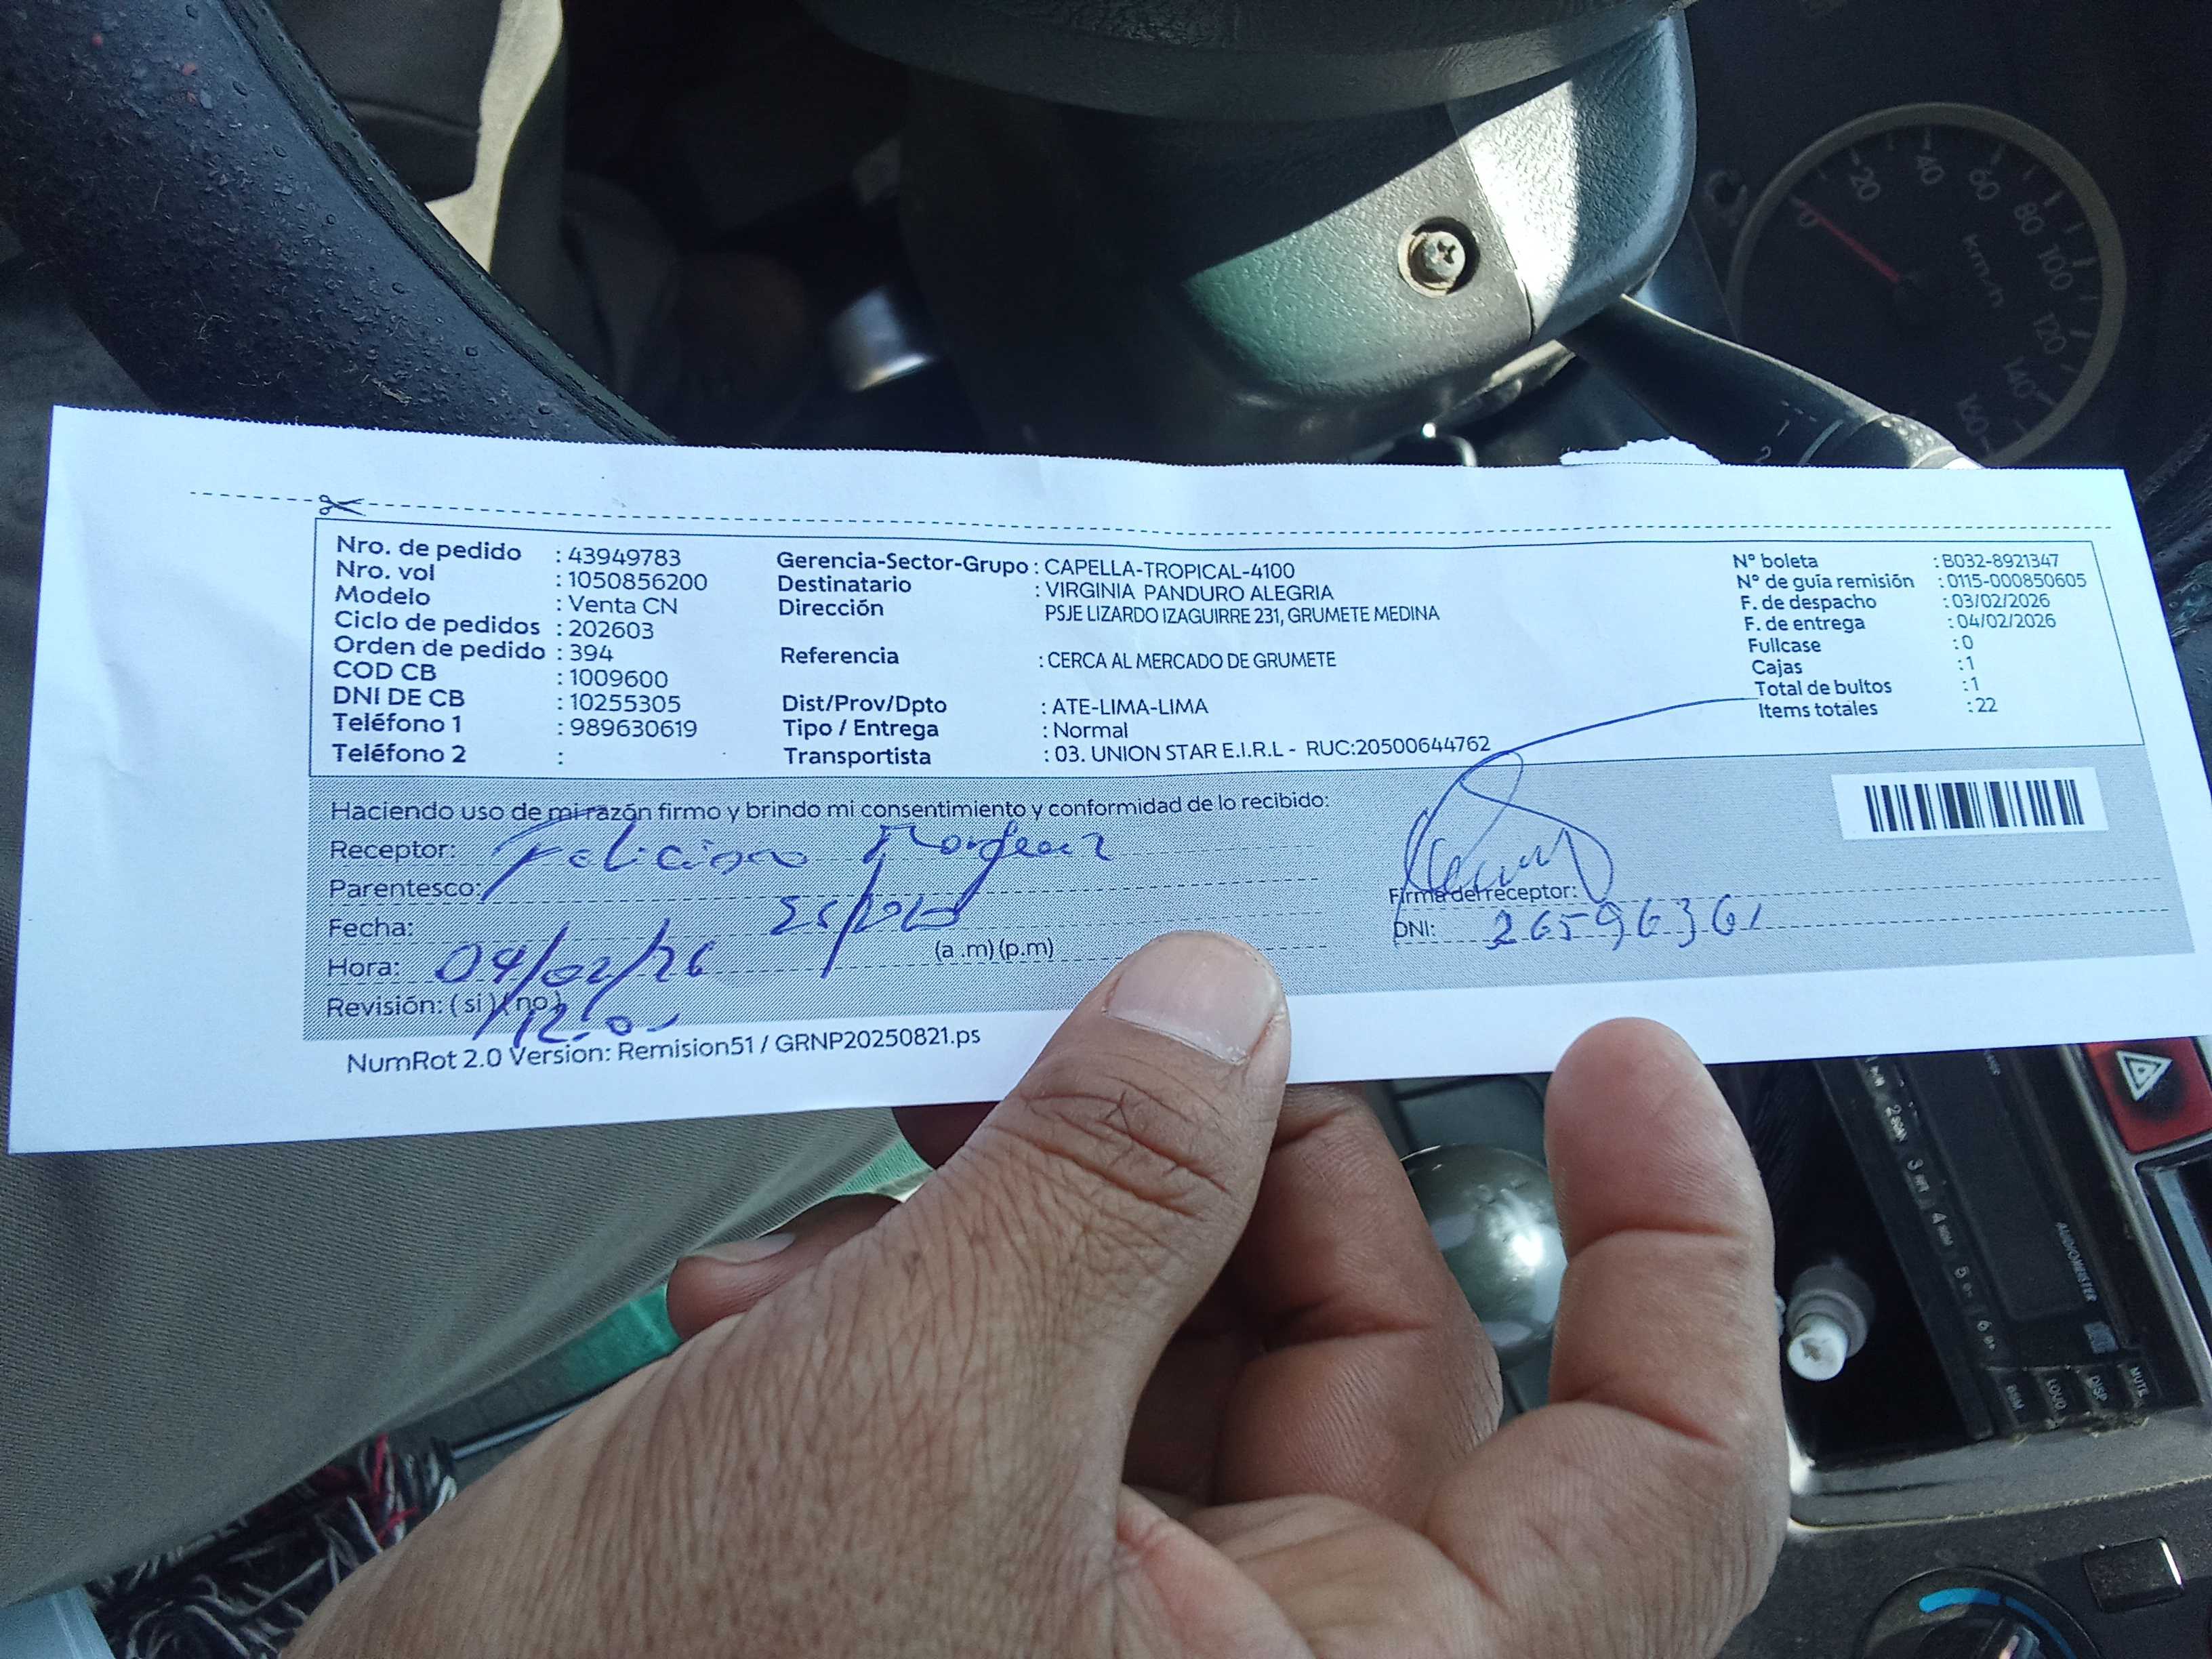 Nro. de pedido : 43949783
Nro. vol : 1050856200
Modelo : Venta CN
Ciclo de pedidos : 202603
Orden de pedido : 394
COD CB : 1009600
DNI DE CB : 10255305
Teléfono 1 : 989630619
Teléfono 2 :
Gerencia-Sector-Grupo : CAPELLA-TROPICAL-4100
Destinatario : VIRGINIA PANDURO ALEGRIA
Dirección PSJE LIZARDO IZAGUIRRE 231, GRUMETE MEDINA
Referencia : CERCA AL MERCADO DE GRUMETE
Dist/Prov/Dpto : ATE-LIMA-LIMA
Tipo / Entrega : Normal
Transportista : 03. UNION STAR E.I.R.L - RUC:20500644762
N° boleta : B032-8921347
N° de guía remisión : 0115-000850605
F. de despacho : 03/02/2026
F. de entrega : 04/02/2026
Fullcase : 0
Cajas : 1
Total de bultos : 1
Items totales : 22
Haciendo uso de mi razón firmo y brindo mi consentimiento y conformidad de lo recibido:
Receptor: Feliciano
Parentesco:
Fecha:
Hora: 04/02/26 (a .m) (p.m)
Revisión: (si) (no)
Firma del receptor:
DNI: 26596361
NumRot 2.0 Version: Remision51 / GRNP20250821.ps
0 20 40 60 80 100 120 140 160
km/h
1
2
2 3 4 5 6
AUDIOMEISTER
LOUD DISP MUTE